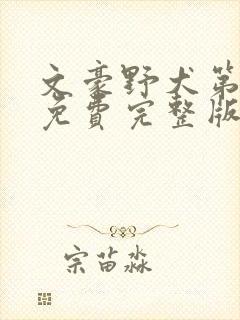 文豪野犬第
免费完整版
宗苗淼